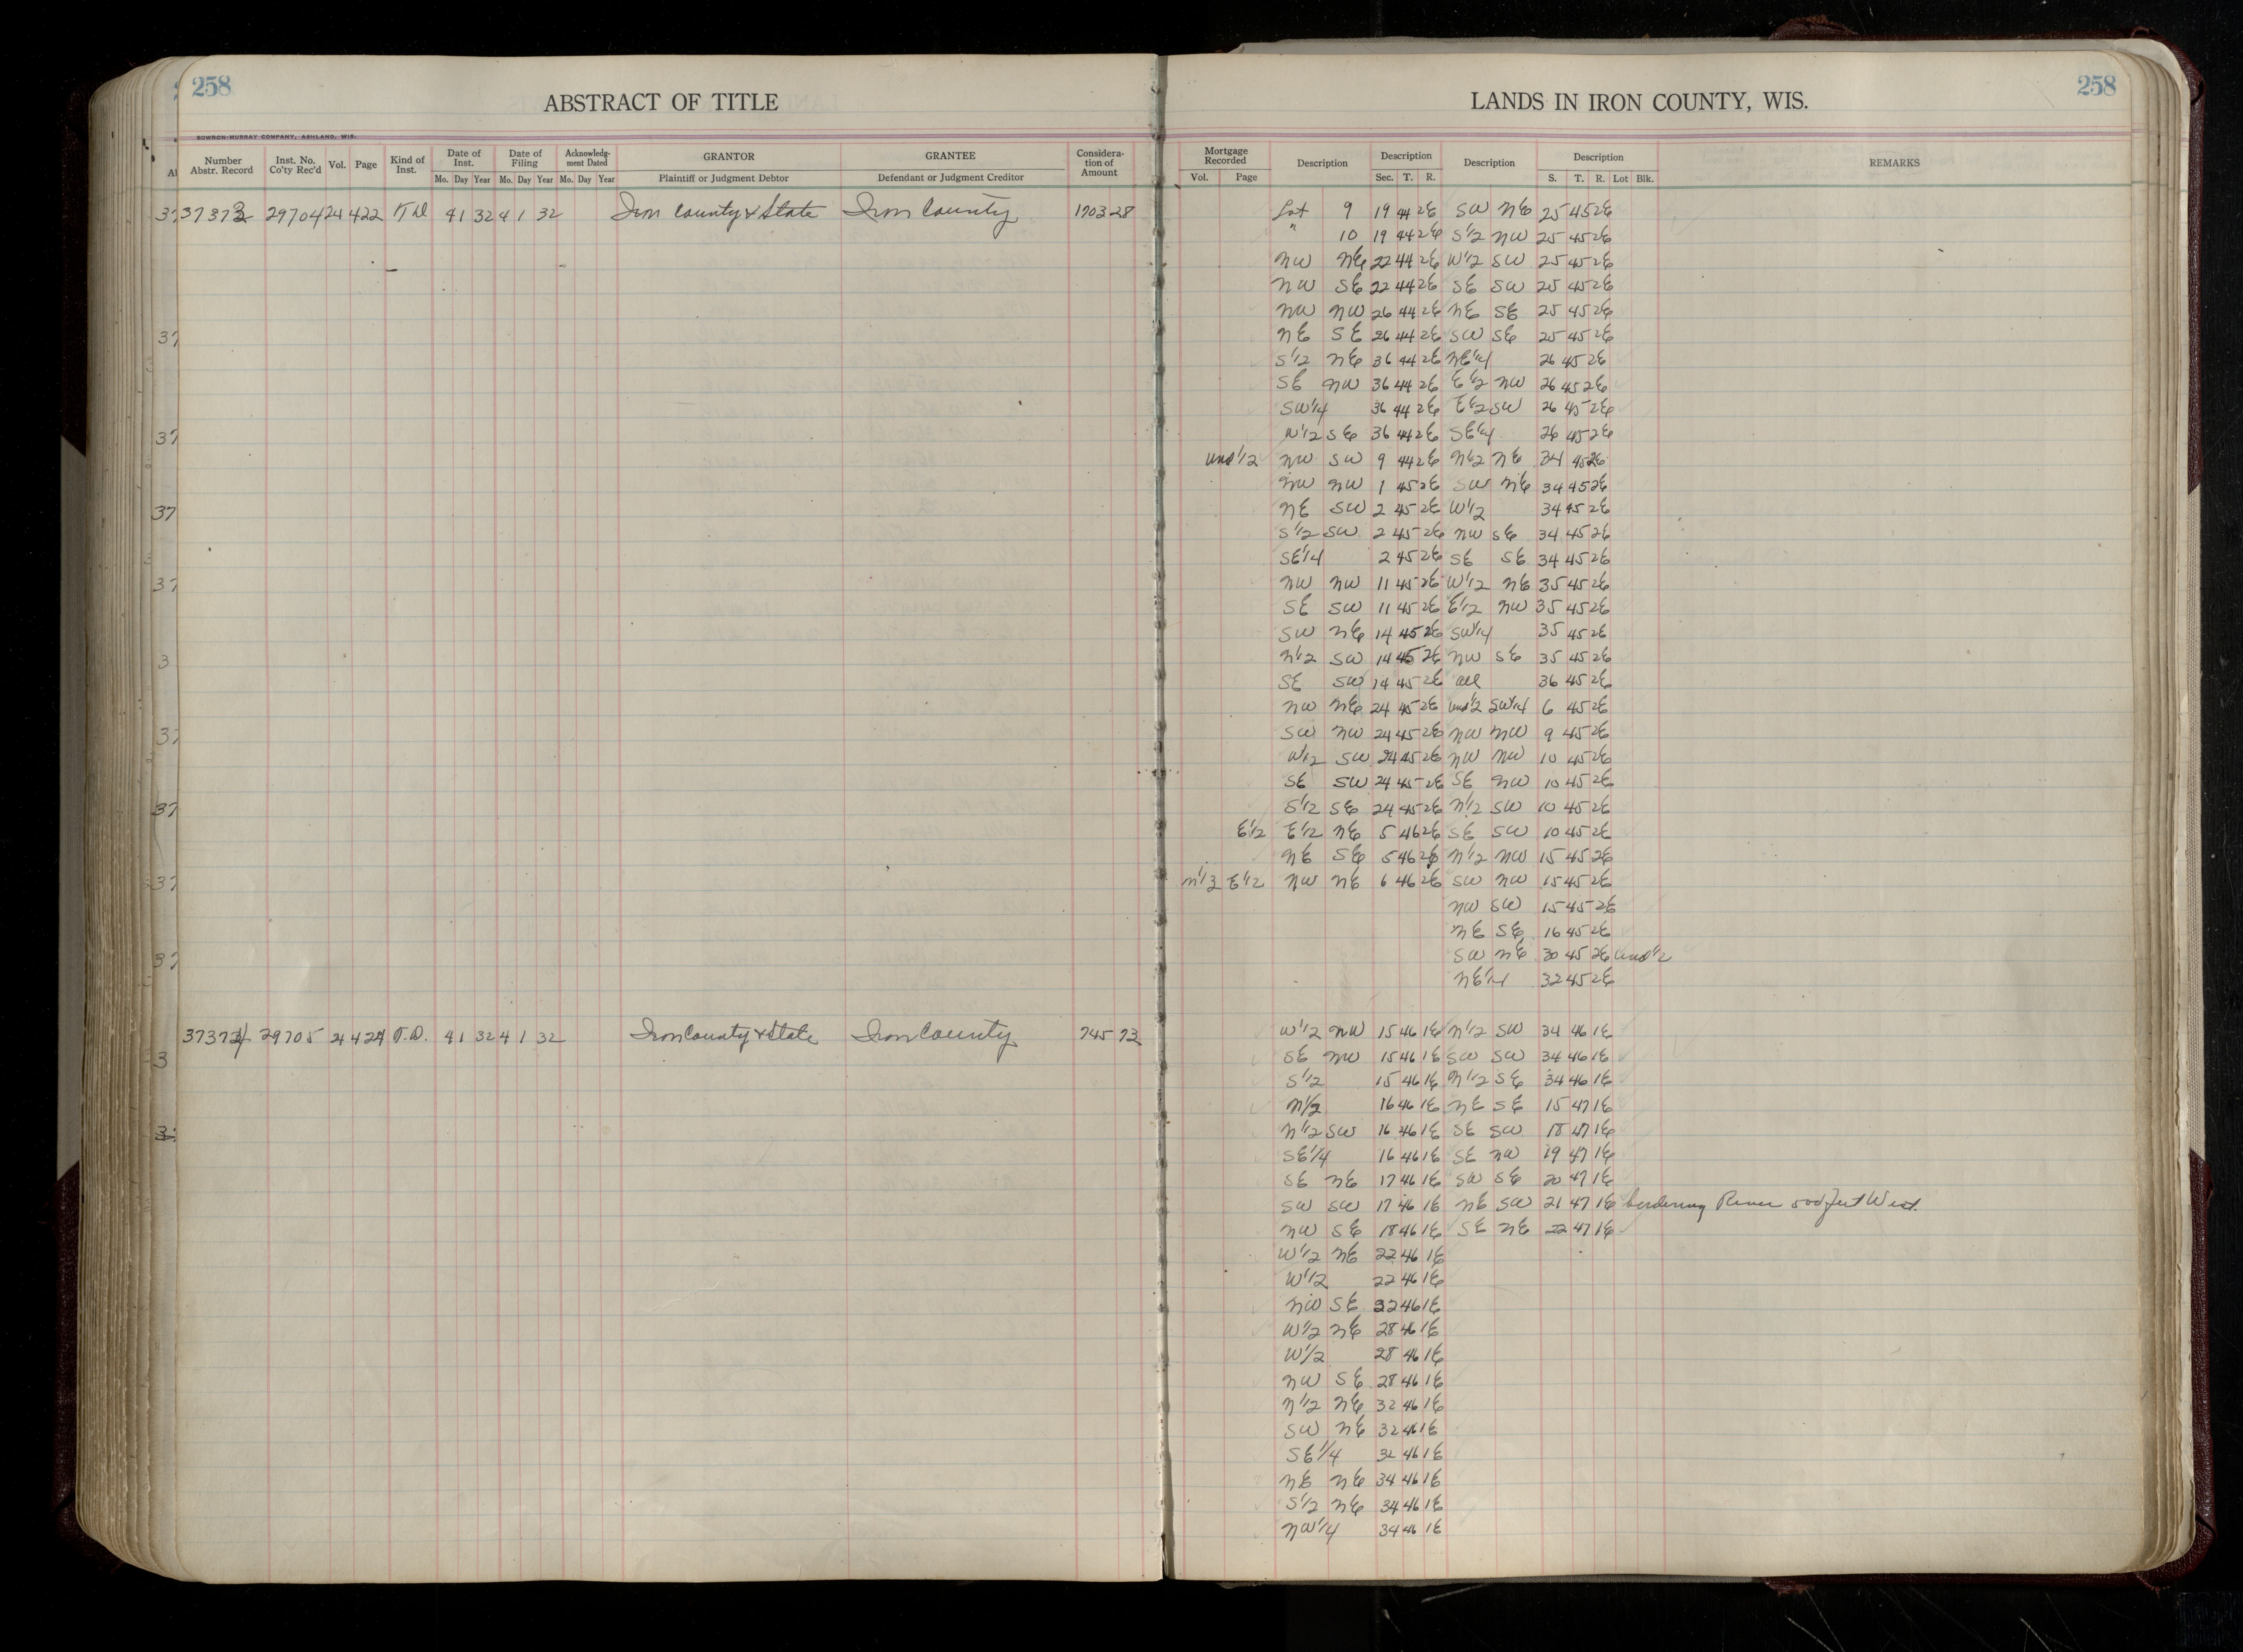 258
ABSTRACT OF TITLE
LANDS IN IRON COUNTY, WIS.
258
BOWRON-MURRAY COMPANY, ASHLAND, WIS.
Number Abstr. Record Inst. No. Co'ty Rec'd Vol. Page Kind of Inst. Date of Inst. Date of Filing Acknowledgment Dated GRANTOR GRANTEE Consideration of Amount Mortgage Recorded Description Description Description Description REMARKS
Mo. Day Year Mo. Day Year Mo. Day Year Plaintiff or Judgment Debtor Defendant or Judgment Creditor Vol. Page Sec. T. R. S. T. R. Lot Blk.
37373 29704 24 422 T D 4 1 32 4 1 32 Iron County & State Iron County 1703 28 Lot 9 19 44 2E SW NE 25 45 2E
" 10 19 44 2E S1/2 NW 25 45 2E
NW NE 22 44 2E W1/2 SW 25 45 2E
NW SE 22 44 2E SE SW 25 45 2E
NW NW 26 44 2E NE SE 25 45 2E
NE SE 26 44 2E SW SE 25 45 2E
S1/2 NE 36 44 2E NE1/4 26 45 2E
SE NW 36 44 2E E1/2 NW 26 45 2E
SW1/4 36 44 2E E1/2 SW 26 45 2E
N1/2 SE 36 44 2E SE1/4 26 45 2E
und1/2 NW SW 9 44 2E N1/2 NE 34 45 2E
NW NW 1 45 2E SW NE 34 45 2E
NE SW 2 45 2E W1/2 34 45 2E
S1/2 SW 2 45 2E NW SE 34 45 2E
SE1/4 2 45 2E SE SE 34 45 2E
NW NW 11 45 2E W1/2 NE 35 45 2E
SE SW 11 45 2E E1/2 NW 35 45 2E
SW NE 14 45 2E SW1/4 35 45 2E
N1/2 SW 14 45 2E NW SE 35 45 2E
SE SW 14 45 2E all 36 45 2E
NW NE 24 45 2E und1/2 SW1/4 6 45 2E
SW NW 24 45 2E NW NW 9 45 2E
W1/2 SW 24 45 2E NW NW 10 45 2E
SE SW 24 45 2E SE NW 10 45 2E
S1/2 SE 24 45 2E N1/2 SW 10 45 2E
E1/2 E1/2 NE 5 46 2E SE SW 10 45 2E
NE SE 5 46 2E N1/2 NW 15 45 2E
N1/3 E1/2 NW NE 6 46 2E SW NW 15 45 2E
NW SW 15 45 2E
NE SE 16 45 2E
SW NE 30 45 2E und1/2
NE1/4 32 45 2E
37374 29705 24 424 T.D. 4 1 32 4 1 32 Iron County & State Iron County 745 73 W1/2 NW 15 46 1E N1/2 SW 34 46 1E
SE NW 15 46 1E SW SW 34 46 1E
S1/2 15 46 1E N1/2 SE 34 46 1E
N1/2 16 46 1E NE SE 15 47 1E
N1/2 SW 16 46 1E SE SW 18 47 1E
SE1/4 16 46 1E SE NW 19 47 1E
SE NE 17 46 1E SW SE 20 47 1E
SW SW 17 46 1E NE SW 21 47 1E bordering River 500 feet West
NW SE 18 46 1E SE NE 22 47 1E
W1/2 NE 22 46 1E
W1/2 22 46 1E
NW SE 22 46 1E
W1/2 NE 28 46 1E
W1/2 28 46 1E
NW SE 28 46 1E
N1/2 NE 32 46 1E
SW NE 32 46 1E
SE1/4 32 46 1E
NE NE 34 46 1E
S1/2 NE 34 46 1E
NW1/4 34 46 1E